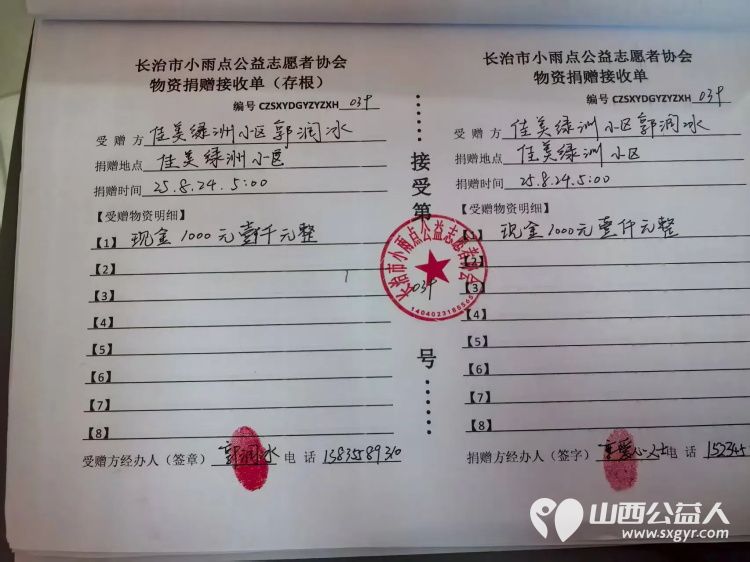 长治市小雨点公益志愿者协会
物资捐赠接收单（存根）
编号 CZSXYDGYZYZXH 034
受 赠 方 佳美绿洲小区郭润冰
捐赠地点 佳美绿洲小区
捐赠时间 25.8.24.5:00
【受赠物资明细】
【1】 现金1000元壹千元整
【2】
【3】
【4】
【5】
【6】
【7】
【8】
受赠方经办人（签章） 郭润冰 电 话 13835589310
接受第
034
号
长治市小雨点公益志愿者协会
1404023185565
长治市小雨点公益志愿者协会
物资捐赠接收单
编号 CZSXYDGYZYZXH 034
受 赠 方 佳美绿洲小区郭润冰
捐赠地点 佳美绿洲小区
捐赠时间 25.8.24.5:00
【受赠物资明细】
【1】 现金1000元壹仟元整
【2】
【3】
【4】
【5】
【6】
【7】
【8】
捐赠方经办人（签字） 爱心人士 电 话 152345
山西公益人
www.sxgyr.com